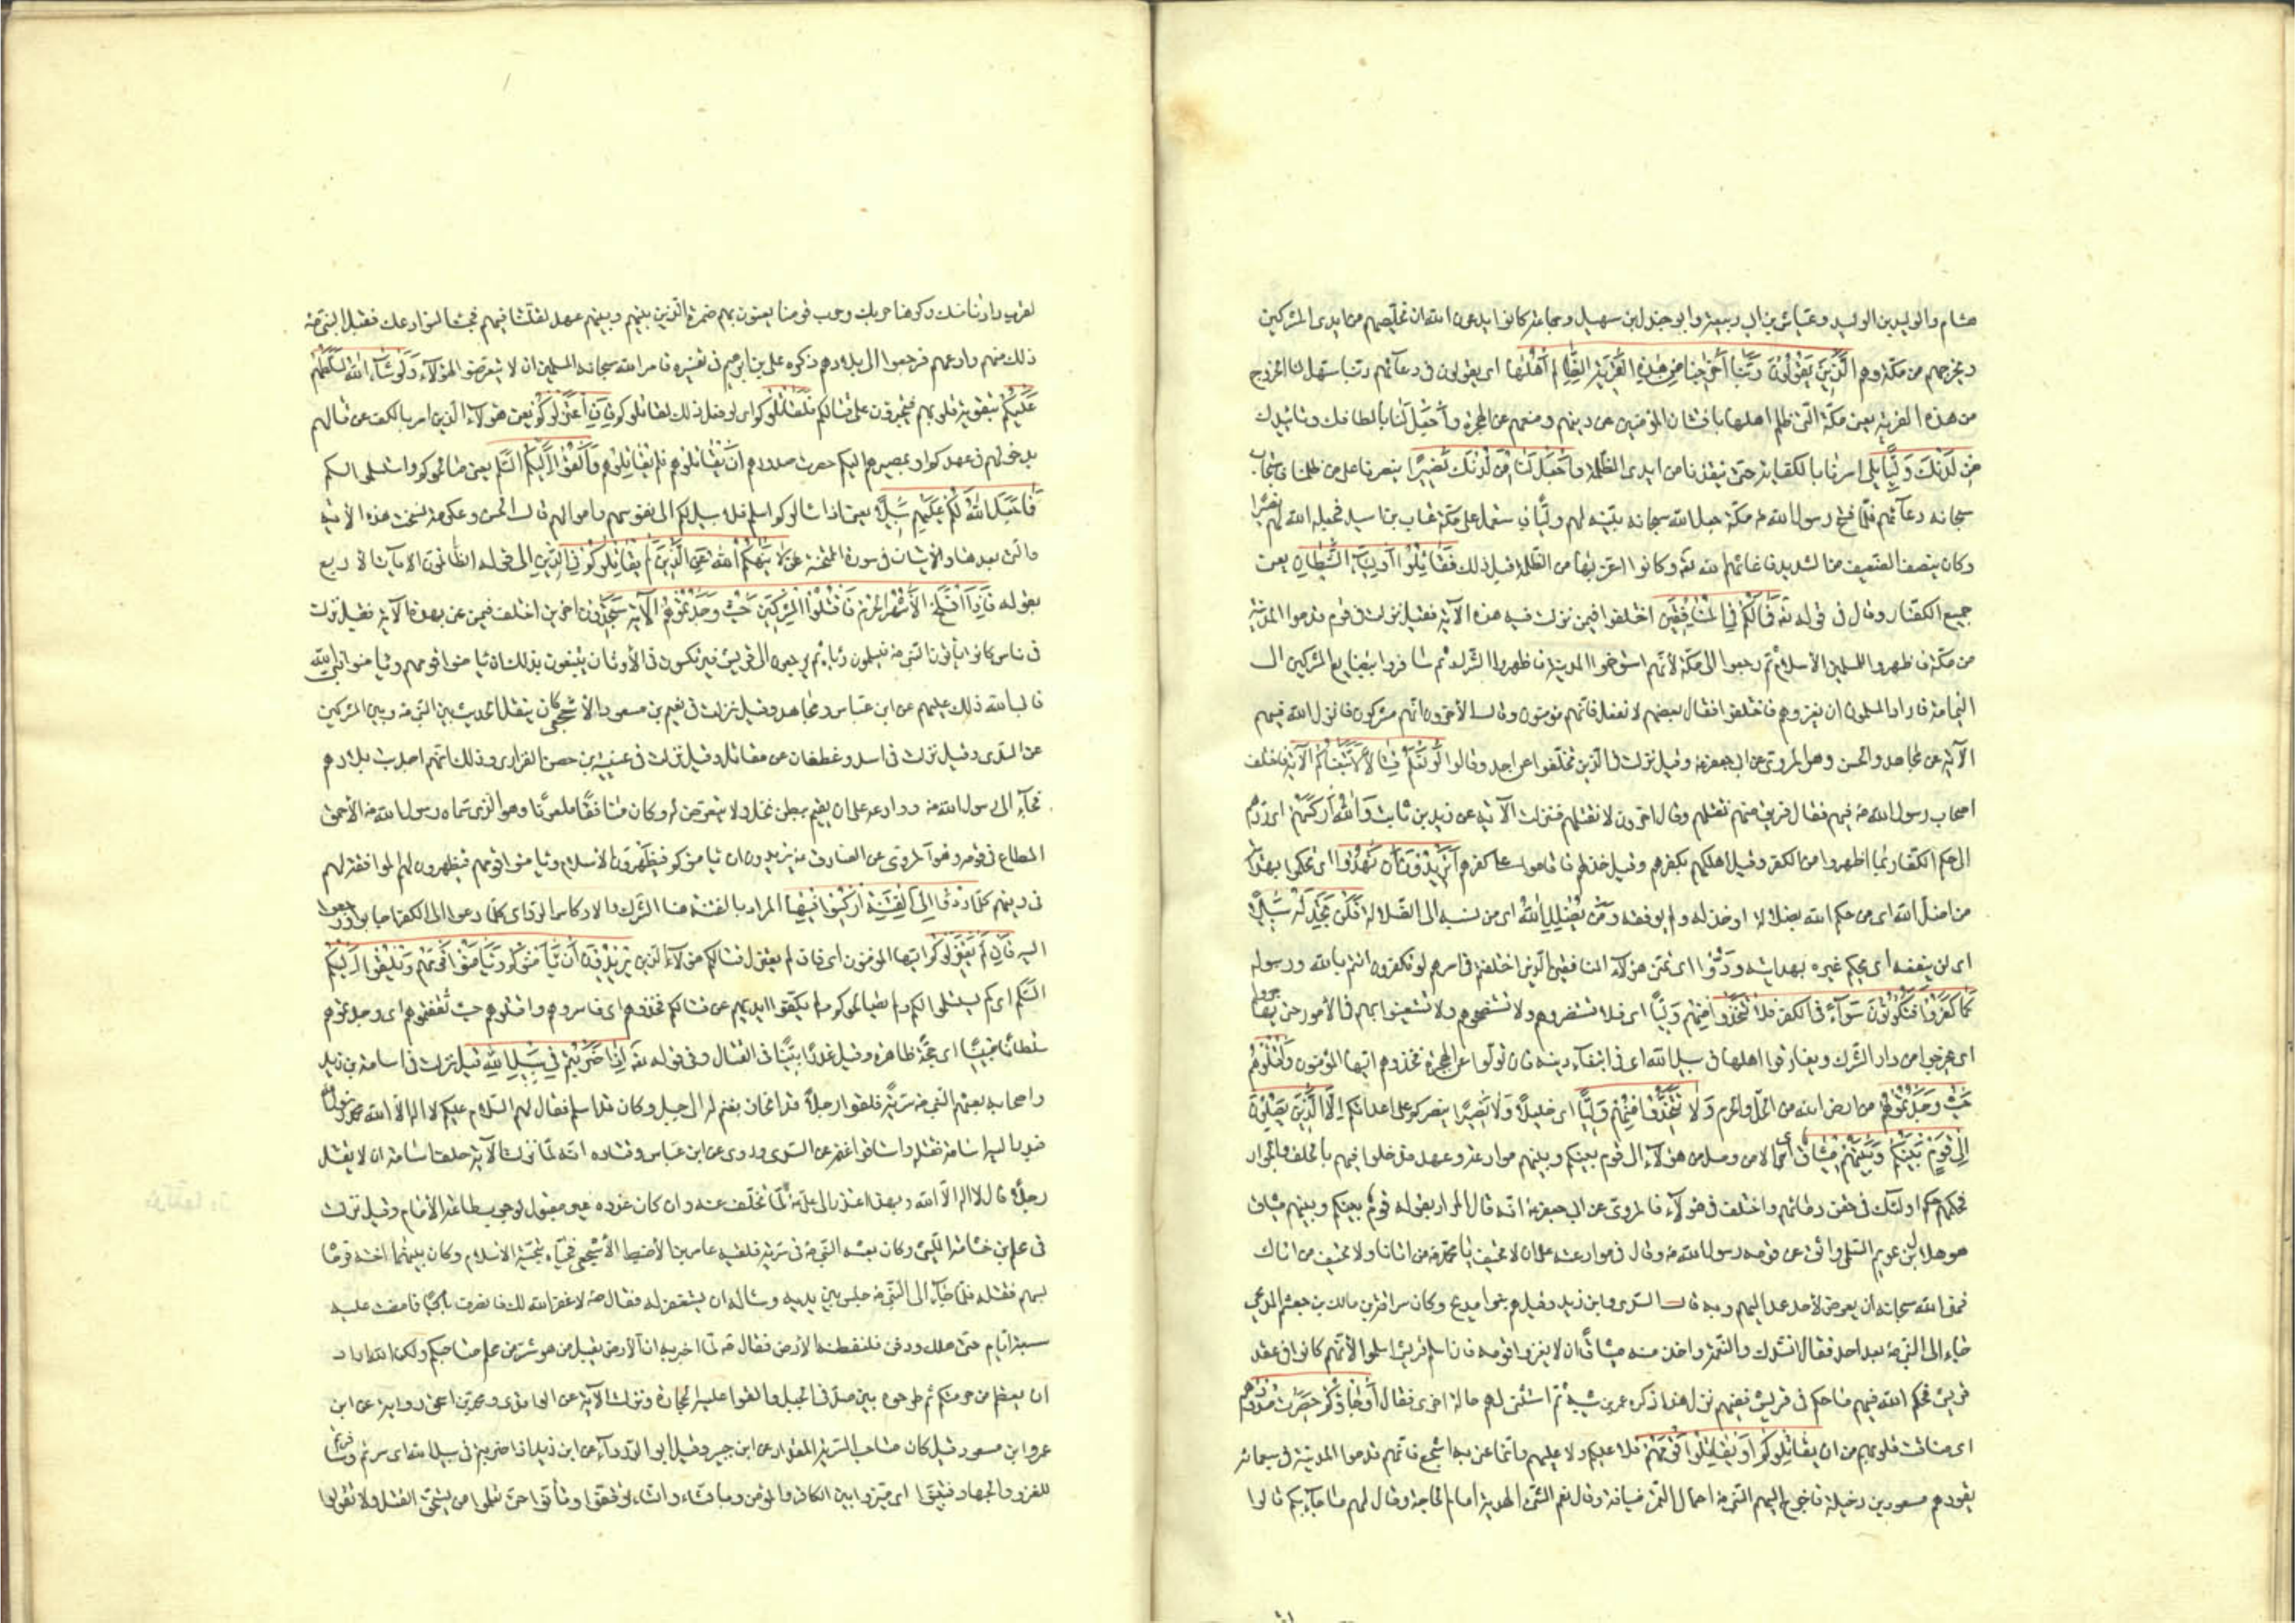 هشام والوليد بن الوليد وعياش بن ابي ربيعة وابو جندل بن سهيل وجماعة كانوا يدعون الله ان يخلصهم من ايدى المشركين
ويخرجهم من مكة وهم الَّذِينَ يَقُولُونَ رَبَّنا أَخْرِجْنا مِنْ هذِهِ الْقَرْيَةِ الظَّالِمِ أَهْلُها اى يقولون فى دعائهم ربنا سهل لنا الخروج
من هذه القرية يعنى مكة التى ظلم اهلها بافتتان المؤمنين عن دينهم ومنعهم عن الهجرة وَاجْعَلْ لَنا بالطافك وتائيدك
مِنْ لَدُنْكَ وَلِيًّا يلى امرنا بالكفاية حتى ينقذنا من ايدى الظلمة وَاجْعَلْ لَنا مِنْ لَدُنْكَ نَصِيراً ينصرنا على من ظلمنا فاستجاب
سبحانه دعائهم فلما فتح رسول الله مكة جعل الله سبحانه نبيه لهم وليا فاستعمل على مكة عتاب بن اسيد فجعله الله لهم نصيرا
وكان ينصف الضعيف من الشديد فاغاثهم الله وكانوا اعز بها من الظلمة قبل ذلك فَقاتِلُوا أَوْلِياءَ الشَّيْطانِ يعنى
جميع الكفار وقال فى قوله فَما لَكُمْ فِي الْمُنافِقِينَ اختلفوا فيمن نزلت فيه هذه الآية فقيل نزلت فى قوم قدموا المدينة
من مكة فاظهروا للمسلمين الاسلام ثم رجعوا الى مكة لأنهم استوخموا المدينة فاظهروا الشرك ثم سافروا ببضايع المشركين الى
اليمامة فاراد المسلمون ان يغزوهم فاختلفوا فقال بعضهم لا نفعل فانهم مؤمنون وقال الآخرون انهم مشركون فانزل الله فيهم
الآية عن مجاهد والحسن وهو المروى عن ابى جعفر وقيل نزلت فى الذين تخلفوا عن احد وقالوا لَوْ نَعْلَمُ قِتالاً لَاتَّبَعْناكُمْ الآية فاختلف
اصحاب رسول الله فيهم فقال فريق منهم نقتلهم وقال اخرون لا نقتلهم فنزلت الآية عن زيد بن ثابت وَاللَّهُ أَرْكَسَهُمْ اى ردهم
الى حكم الكفار بما اظهروا من الكفر وقيل اهلكهم بكفرهم وقيل خذلهم فاقاموا على كفرهم أَتُرِيدُونَ أَنْ تَهْدُوا اى تحكموا بهداية
من اضل الله اى من حكم الله بضلاله او خذله ولم يوفقه وَمَنْ يُضْلِلِ اللَّهُ اى من نسبه الى الضلالة فَلَنْ تَجِدَ لَهُ سَبِيلاً
اى لن ينفعه ان يحكم غيره بهدايته وَدُّوا اى تمنى هؤلاء المنافقين الذين اختلفتم فى امرهم لو تكفرون انتم بالله ورسوله
كَما كَفَرُوا فَتَكُونُونَ سَواءً فى الكفر فَلا تَتَّخِذُوا مِنْهُمْ وَلِيًّا اى فلا تستنصروهم ولا تستنصحوهم ولا تستعينوا بهم فى الامور حتى يهاجروا
اى يخرجوا من دار الشرك ويفارقوا اهلها فى سبيل الله اى فى ابتغاء دينه فان تولوا عن الهجرة فخذوهم ايها المؤمنون وَاقْتُلُوهُمْ
حَيْثُ وَجَدْتُمُوهُمْ من ارض الله من الحل والحرم وَلا تَتَّخِذُوا مِنْهُمْ وَلِيًّا اى خليلا وَلا نَصِيراً ينصركم على اعدائكم إِلَّا الَّذِينَ يَصِلُونَ
إِلى قَوْمٍ بَيْنَكُمْ وَبَيْنَهُمْ مِيثاقٌ اى الا من وصل من هؤلاء الى قوم بينكم وبينهم موادعة وعهد فدخلوا فيهم بالحلف والجوار
فحكمهم حكم اولئك فى حقن دمائهم واختلف فى هؤلاء فالمروى عن ابى جعفر انه قال المراد بقوله قوم بينكم وبينهم ميثاق
هو هلال بن عويمر السلمى واثق عن قومه رسول الله وقال فى موادعته على ان لا نحيف يا محمد من اتانا ولا تحيف من اتاك
فنهى الله سبحانه ان يعرض لاحد عهد اليهم وبه قال السدى وابن زيد وقيل هم بنو مدلج وكان سراقة بن مالك بن جعشم المدلجى
جاء الى النبى بعد احد فقال انشدك والنعمة واخذ منه ميثاقا ان لا يغزوا قومه فان اسلم قريش اسلموا لانهم كانوا فى عقد
قريش فحكم الله فيهم ما حكم فى قريش ففيهم نزل هذا ذكره عمر بن شيبة ثم استثنى لهم حالة اخرى فقال أَوْ جاؤُكُمْ حَصِرَتْ صُدُورُهُمْ
اى ضاقت قلوبهم من ان يُقاتِلُوكُمْ أَوْ يُقاتِلُوا قَوْمَهُمْ فلا عليكم ولا عليهم وانما عنى به اشجع فانهم قدموا المدينة فى سبعمائة
يقودهم مسعود بن دخيلة فاخرج اليهم النبى احمال التمر ضيافة وقال نعم الشئ الهدية امام الحاجة وقال لهم ما جاء بكم قالوا
لقرب دارنا منك وكرهنا حربك وحرب قومنا يعنون بهم ضمرة الذين بينهم وبينهم عهد لقلتنا فيهم فجئنا لنوادعك فقبل النبى
ذلك منهم ووادعهم فرجعوا الى بلادهم ذكره على بن ابراهيم فى تفسيره فامر الله سبحانه المسلمين ان لا يتعرضوا لهؤلاء وَلَوْ شاءَ اللَّهُ لَسَلَّطَهُمْ
عَلَيْكُمْ بتقوية قلوبهم فيجترؤن على قتالكم فَلَقاتَلُوكُمْ اى لو فعل ذلك لقاتلوكم فَإِنِ اعْتَزَلُوكُمْ يعنى هؤلاء الذين امر بالكف عن قتالهم
بدخولهم فى عهدكم او بمصيرهم اليكم حصرت صدورهم ان يقاتلوكم فَلَمْ يُقاتِلُوكُمْ وَأَلْقَوْا إِلَيْكُمُ السَّلَمَ يعنى صالحوكم واستسلموا لكم
فَما جَعَلَ اللَّهُ لَكُمْ عَلَيْهِمْ سَبِيلاً يعنى اذا سالموكم فلا سبيل لكم الى نفوسهم واموالهم قال الحسن وعكرمة نسخت هذه الآية
والتى بعدها والآيتان فى سورة الممتحنة لا يَنْهاكُمُ اللَّهُ عَنِ الَّذِينَ لَمْ يُقاتِلُوكُمْ فِي الدِّينِ الى قوله الظالمون الآيات الاربع
بقوله فَإِذَا انْسَلَخَ الْأَشْهُرُ الْحُرُمُ فَاقْتُلُوا الْمُشْرِكِينَ حَيْثُ وَجَدْتُمُوهُمْ الآية سَتَجِدُونَ آخرين اختلف فيمن عنى بهذه الآية فقيل نزلت
فى ناس كانوا يأتون النبى فيسلمون رياء ثم يرجعون الى قريش فيرتكسون فى الاوثان يبتغون بذلك ان يامنوا قومهم ويامنوا نبى الله
فابى الله ذلك عليهم عن ابن عباس ومجاهد وقيل نزلت فى نعيم بن مسعود الاشجعى كان ينقل الحديث بين النبى وبين المشركين
عن السدى وقيل نزلت فى اسد وغطفان عن مقاتل وقيل نزلت فى عيينة بن حصن الفزارى وذلك انهم اجدبت بلادهم
فجاء الى رسول الله ووادعه على ان يقيم ببطن نخل ولا يتعرض له وكان منافقا ملعونا وهو الذى سماه رسول الله الاحمق
المطاع فى قومه وهو المروى عن الصادق يريدون ان يامنوكم فيظهرون الاسلام ويامنوا قومهم فيظهرون لهم الموافقة لهم
فى دينهم كُلَّما رُدُّوا إِلَى الْفِتْنَةِ أُرْكِسُوا فِيها المراد بالفتنة هنا الشرك والاركاس الرد اى كلما دعوا الى الكفر اجابوا ورجعوا
اليه فَإِنْ لَمْ يَعْتَزِلُوكُمْ ايها المؤمنون اى فان لم يعتزل قتالكم هؤلاء الذين يُرِيدُونَ أَنْ يَأْمَنُوكُمْ وَيَأْمَنُوا قَوْمَهُمْ وَيُلْقُوا إِلَيْكُمُ
السَّلَمَ اى لم يستسلموا لكم ولم يصالحوكم ولم يكفوا ايديهم عن قتالكم فخذوهم اى فاسروهم واقتلوهم حيث ثقفتموهم اى وجدتموهم
سُلْطاناً مُبِيناً اى حجة ظاهرة وقيل عذرا بينا فى القتال وفى قوله إِذا ضَرَبْتُمْ فِي سَبِيلِ اللَّهِ قيل نزلت فى اسامة بن زيد
واصحابه بعثهم النبى فى سرية فلقوا رجلا قد انحاز بغنم له الى جبل وكان قد اسلم فقال لهم السلام عليكم لا اله الا الله محمد رسول الله
فبدر اليه اسامة فقتله واستاقوا غنمه عن السدى وروى عن ابن عباس وقتاده انه لما نزلت الآية حلف اسامة ان لا يقتل
رجلا قال لا اله الا الله وبهذا اعتذر الى على لما تخلف عنه وان كان عذره غير مقبول لوجوب طاعة الامام وقيل نزلت
فى محلم بن جثامة الليثى وكان بعثه النبى فى سرية فلقيه عامر بن الاضبط الاشجعى فحياه بتحية الاسلام وكان بينهما احنة فرماه
بسهم فقتله فلما جاء الى النبى جلس بين يديه وساله ان يستغفر له فقال لا غفر الله لك فانصرف باكيا فما مضت عليه
سبعة ايام حتى هلك ودفن فلفظته الارض فقال لما اخبر به ان الارض تقبل من هو شر من محلم صاحبكم ولكن الله اراد
ان يعظم من حرمتكم ثم طرحوه بين صدفى الجبل والقوا عليه الحجارة ونزلت الآية عن الواقدى ومحمد بن اسحق رواية عن ابن
عمر وابن مسعود وقيل كان صاحب السرية المقداد عن ابن جبير وقيل ابو الدرداء عن ابن زيد اذا ضربتم فى سبيل الله اى سرتم وسافرتم
للغزو والجهاد فَتَبَيَّنُوا اى ميزوا بين الكافر والمؤمن وبالثاء والتاء توقفوا وتأنوا حتى تعلموا من يستحق القتل ولا تقولوا